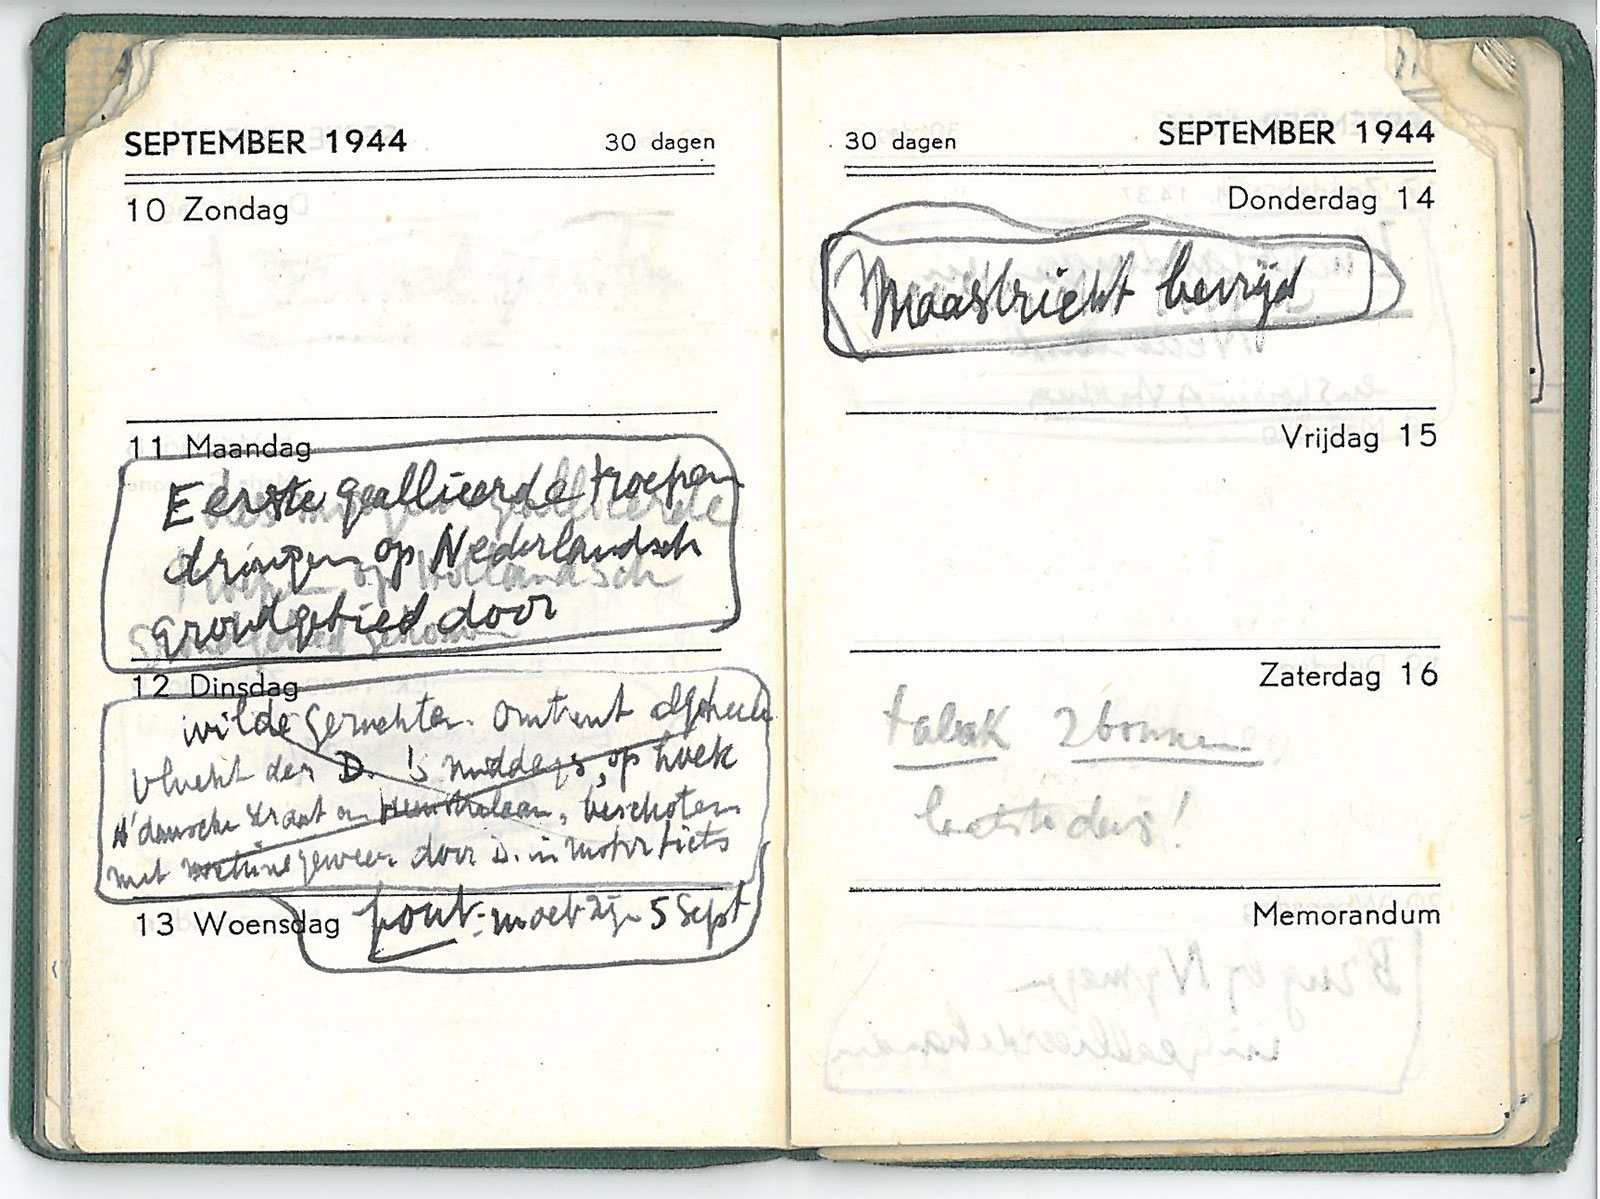 SEPTEMBER 1944 30 dagen
10 Zondag
11 Maandag
Eerste geallieerde troepen
dringen op Nederlandsch
grondgebied door
12 Dinsdag
wilde geruchten omtrent algeheele
vlucht der D. 's middags, op hoek
A'damsche straat en , beschoten
met machinegeweer door D. in motorfiets
13 Woensdag fout: moet zijn 5 Sept
30 dagen SEPTEMBER 1944
Donderdag 14
Maastricht bevrijd
Vrijdag 15
Zaterdag 16
tabak 2 bonnen
laatste dag!
Memorandum